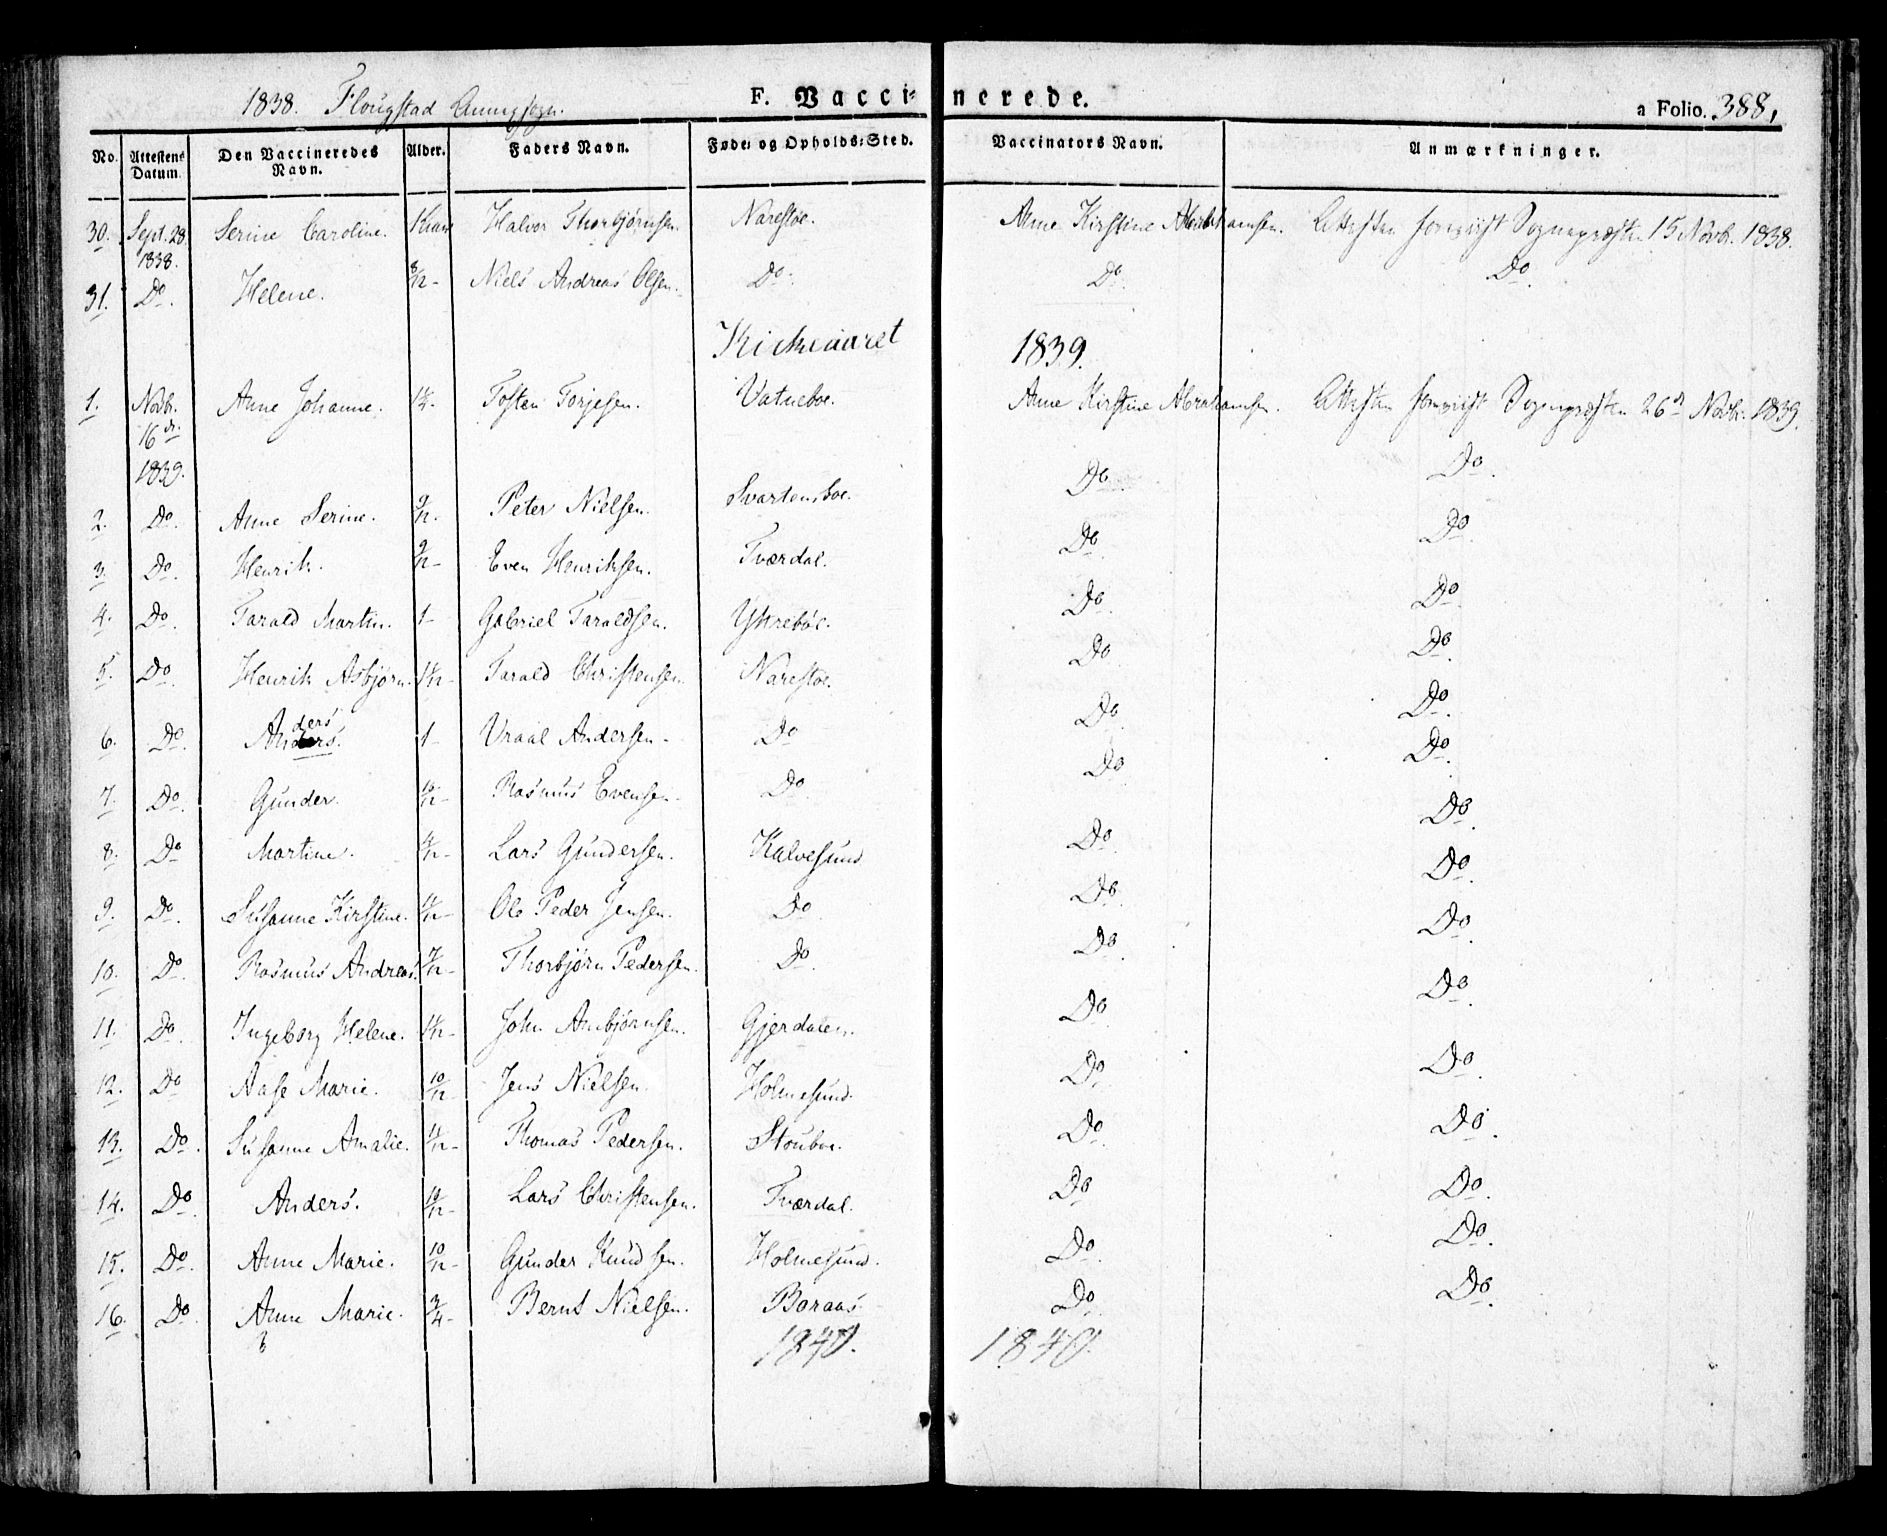 1838. Flougstad Annexsogn. F. Vaccinerede. a Folio. 388,
No. Attestens Datum. Den Vaccineredes Navn. Alder. Faders Navn. Føde- og Opholds-Sted. Vaccinators Navn. Anmærkninger.
30. Sept. 28 1838. Serine Caroline. Halvor Thorbjørnsen. Narestøe. Anne Kirstine Abrahamsen. Attesten foreviist Sognepræsten 15 Novbr. 1838.
31. Do. Helene. 8/12 - Niels Andreas Olsen. Do. Do. Do.
Kirkeaaret 1839.
1. Novbr. 16de. 1839. Anne Johanne. Tosten Torjesen. Vatneboe. Anne Kirstine Abrahamsen. Attesten foreviist Sognepræsten 26de Novbr. 1839.
2. Do. Anne Serine. 9/12. Peter Nielsen. Svartensboe. Do. Do.
3. Do. Henrik. 9/12 - Even Henriksen. Tværdal. Do. Do.
4. Do. Tarald Martin. 1 - Gabriel Taraldsen. Ytrebøe. Do. Do.
5. Do. Henrik Asbjørn. Tarald Christensen. Narestøe. Do. Do.
6. Do. Anders. 1 - Vraal Andersen - Do Do. Do.
7. Do. Gunder. 10/12 - Rasmus Evensen - Do. Do Do.
8. Do Martine. Lars Gundersen. Kalvesund Do. Do.
9. Do. Susanne Kirstine. 11/12 - Ole Peder Jensen. Do Do. Do.
10. Do Rasmus Andreas. 7/12 - Thorbjørn Pedersen. Do. Do. Do.
11. Do. Ingeborg Helene. John Anbjørnsen. Gjerdalen. Do Do.
12. Do Aase Marie. 10/12 - Jens Nielsen. Holmesund. Do. Do.
13. Do. Susanne Amalie. 11/12 - Thomas Pedersen. Stouboe. Do. Do.
14. Do. Anders. 10/12 - Lars Christensen. Tværdal. Do Do.
15. Do. Anne Marie. 10/12 - Gunder Knudsen. Holmesund. Do. Do.
16. Do. Anne Marie. 3/4 - Bernt Nielsen. Boraas. Do. Do.
1840. 1840.